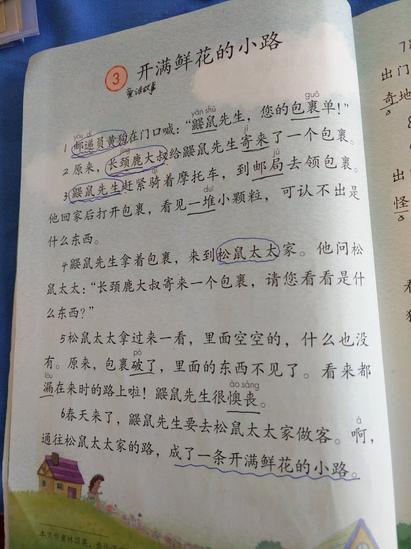 3 开满鲜花的小路
童话故事
yóu dì yǎn shǔ guǒ
1 邮递员黄狗在门口喊：“鼹鼠先生，您的包裹单！”
jǐng jì
2 原来，长颈鹿大叔给鼹鼠先生寄来了一个包裹。
jú
3 鼹鼠先生赶紧骑着摩托车，到邮局去领包裹。
duī
他回家后打开包裹，看见一堆小颗粒，可认不出是
什么东西。
4 鼹鼠先生拿着包裹，来到松鼠太太家。他问松
鼠太太：“长颈鹿大叔寄来一个包裹，请您看看是什
么东西？”
5 松鼠太太拿过来一看，里面空空的，什么也没
pò
有。原来，包裹破了，里面的东西不见了。看来都
lòu ào sàng
漏在来时的路上啦！鼹鼠先生很懊丧。
6 春天来了，鼹鼠先生要去松鼠太太家做客。啊，
à
通往松鼠太太家的路，成了一条开满鲜花的小路。
出门
奇地
出
怪